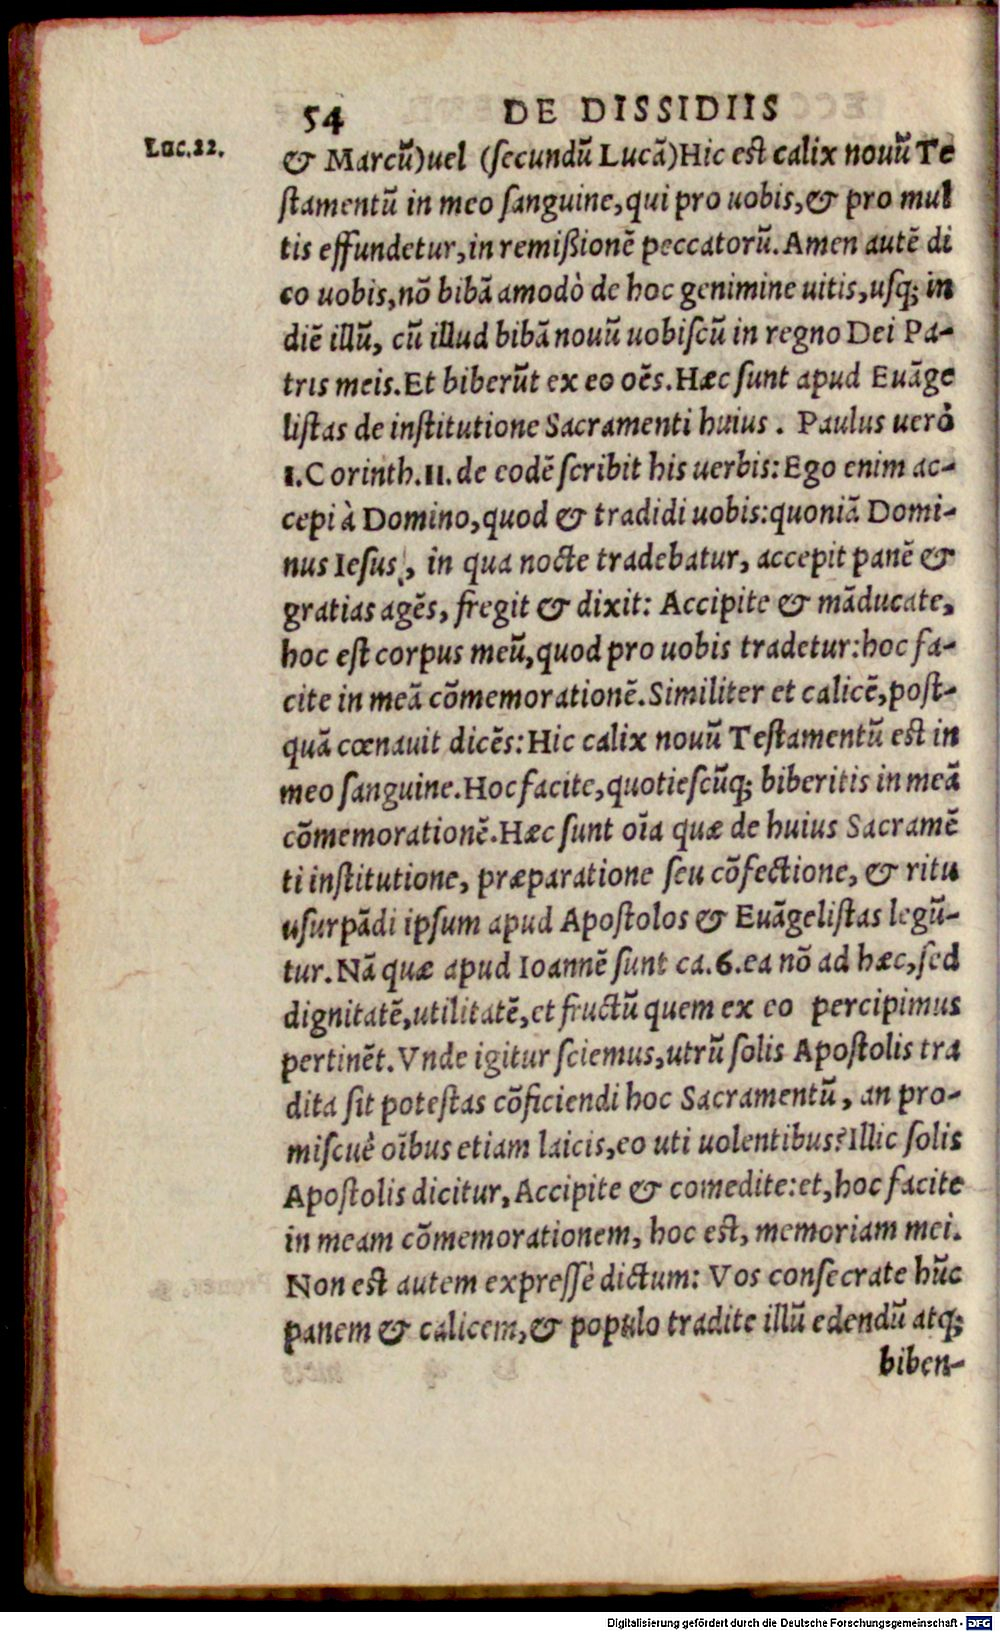 54 DE DISSIDIIS
Luc.22.
& Marcũ)uel (ſecundũ Lucã)Hic eſt calix nouũ Te
ſtamentũ in meo ſanguine,qui pro uobis,& pro mul
tis effundetur,in remiſsionẽ peccatorũ.Amen autẽ di
co uobis,nõ bibã amodò de hoc genimine uitis,uſq; in
diẽ illũ, cũ illud bibã nouũ uobiſcũ in regno Dei Pa-
tris meis.Et biberũt ex eo oẽs.Hæc ſunt apud Euãge
liſtas de inſtitutione Sacramenti huius . Paulus uerò
1.Corinth.11. de eodẽ ſcribit his uerbis:Ego enim ac-
cepi à Domino,quod & tradidi uobis:quoniã Domi-
nus Ieſus, in qua nocte tradebatur, accepit panẽ &
gratias agẽs, fregit & dixit: Accipite & mãducate,
hoc eſt corpus meũ,quod pro uobis tradetur:hoc fa-
cite in meã cõmemorationẽ.Similiter et calicẽ,poſt-
quã cœnauit dicẽs:Hic calix nouũ Teſtamentũ eſt in
meo ſanguine.Hoc facite,quotieſcũq; biberitis in meã
cõmemorationẽ.Hæc ſunt oĩa quæ de huius Sacramẽ
ti inſtitutione, præparatione ſeu cõfectione, & ritu
uſurpãdi ipſum apud Apoſtolos & Euãgeliſtas legũ-
tur.Nã quæ apud Ioannẽ ſunt ca.6.ea nõ ad hæc,ſed
dignitatẽ,utilitatẽ,et fructũ quem ex eo percipimus
pertinẽt.Vnde igitur ſciemus,utrũ ſolis Apoſtolis tra
dita ſit poteſtas cõficiendi hoc Sacramentũ, an pro-
miſcuè oĩbus etiam laicis,eo uti uolentibus?Illic ſolis
Apoſtolis dicitur,Accipite & comedite:et,hoc facite
in meam cõmemorationem, hoc eſt, memoriam mei.
Non eſt autem expreſſè dictum: Vos conſecrate hũc
panem & calicem,& populo tradite illũ edendũ atq;
biben-
Digitalisierung gefördert durch die Deutsche Forschungsgemeinschaft - DFG